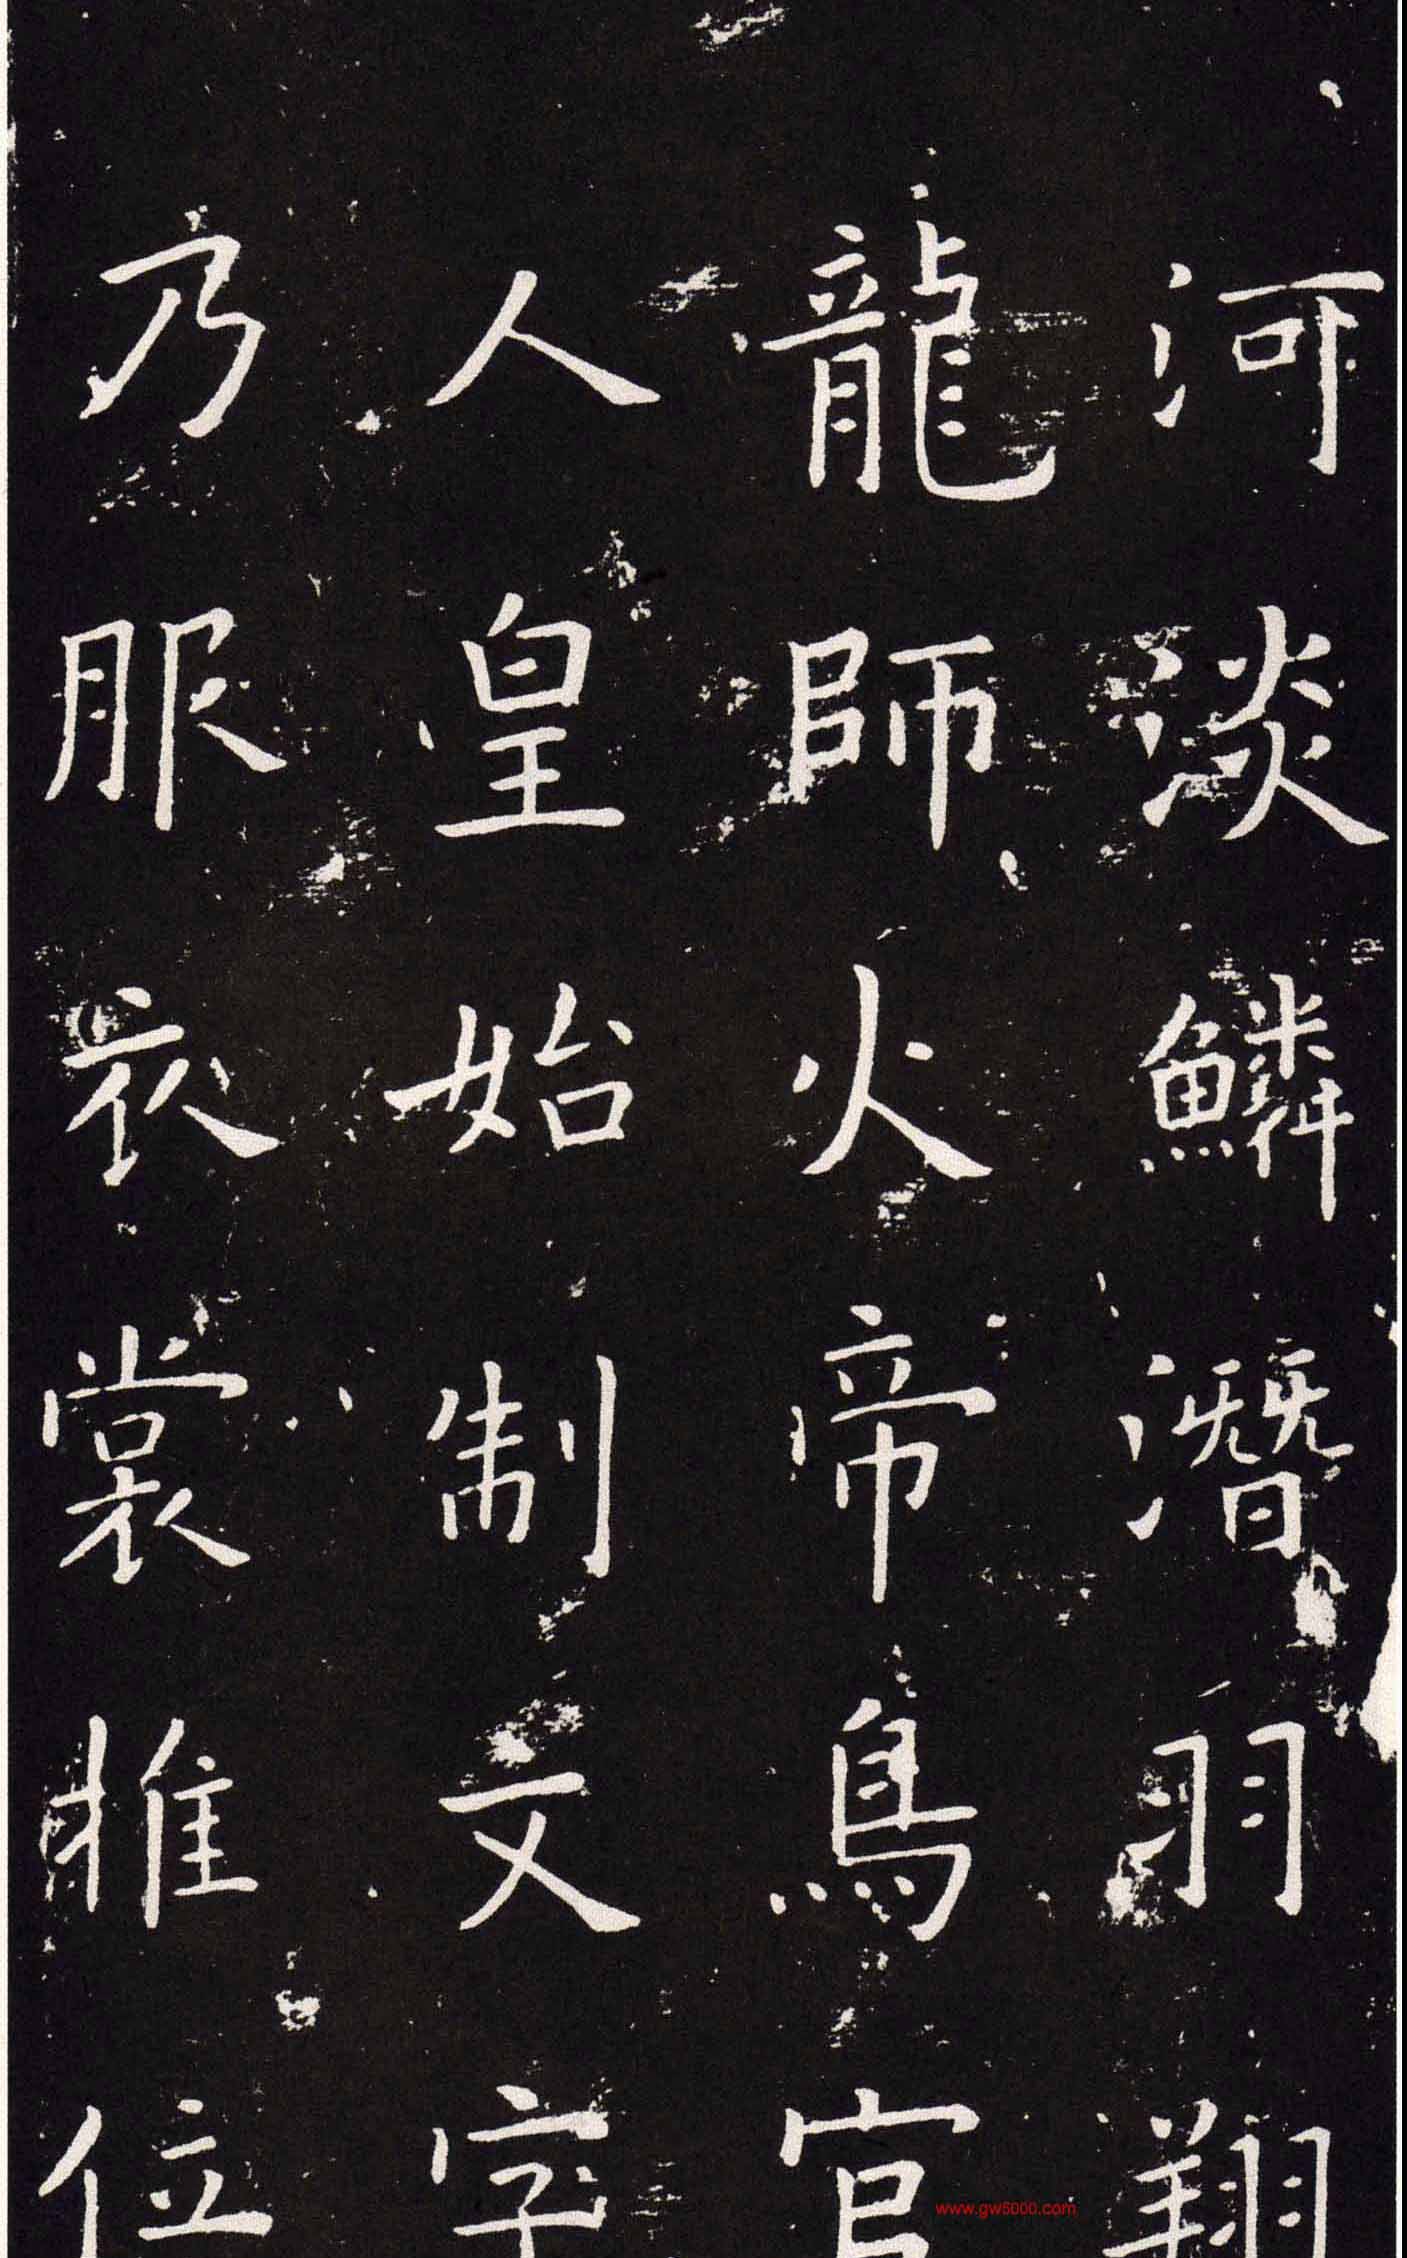 河淡鱗潛羽翔
龍師火帝鳥官
人皇始制文字
乃服衣裳推位
www.gw5000.com